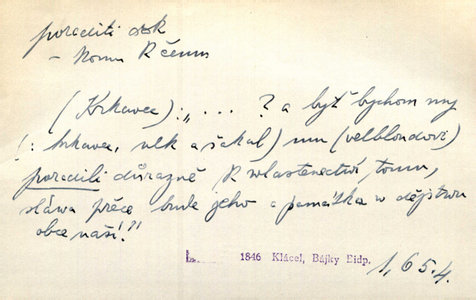 poraditi dok
– komu k čemu
(Krkavec): „ . . . ? a byť bychom my
(: krkavec, vlk a šakal) mu (velbloudovi)
poradili důrazně k wlastenectví tomu,
sláwa přece bude geho a památka w dějstwu
obce naší!"
1846 Klácel, Bájky Bidp.
1, 65.4.